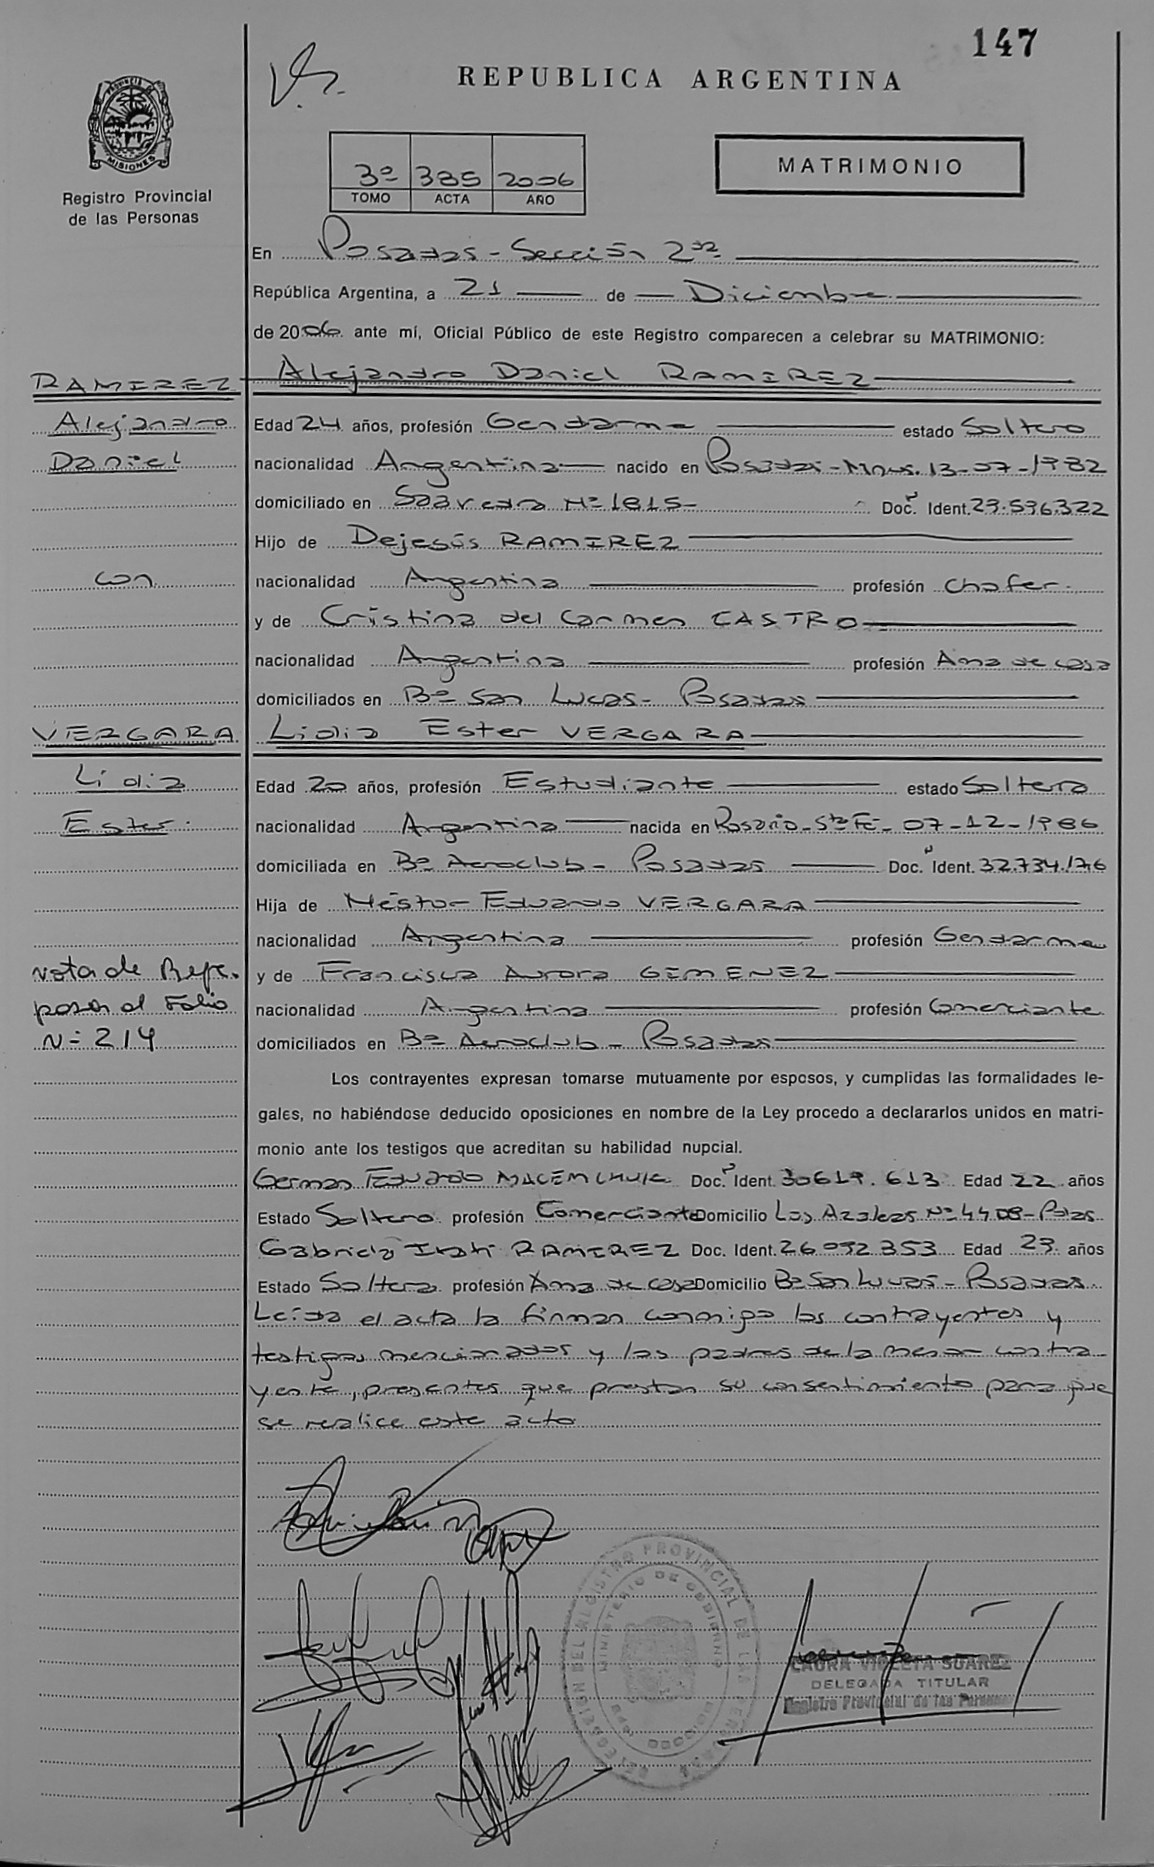 147
REPUBLICA ARGENTINA
MISIONES
Registro Provincial
de las Personas
3º 385 2006
TOMO ACTA AÑO
MATRIMONIO
En Posadas - Sección 2da
República Argentina, a 21 de Diciembre
de 2006 ante mí, Oficial Público de este Registro comparecen a celebrar su MATRIMONIO:
RAMIREZ Alejandro Daniel RAMIREZ
Alejandro Edad 24 años, profesión Gendarme estado Soltero
Daniel nacionalidad Argentina nacido en Posadas - Mnes. 13-07-1982
domiciliado en Saavedra Nº 1815- Doc. Ident. 29.596.322
Hijo de Dejesús RAMIREZ
con nacionalidad Argentina profesión Chofer.
y de Cristina del Carmen CASTRO
nacionalidad Argentina profesión Ama de casa
domiciliados en Bº San Lucas - Posadas
VERGARA Lidia Ester VERGARA
Lidia Edad 20 años, profesión Estudiante estado Soltera
Ester. nacionalidad Argentina nacida en Rosario - Sta Fé - 07-12-1986
domiciliada en Bº Aeroclub - Posadas Doc. Ident. 32.734.176
Hija de Néstor Eduardo VERGARA
nacionalidad Argentina profesión Gendarme
nota de Refe. y de Francisca Aurora GIMENEZ
pasa al Folio nacionalidad Argentina profesión Comerciante
N= 214 domiciliados en Bº Aeroclub - Posadas
Los contrayentes expresan tomarse mutuamente por esposos, y cumplidas las formalidades le-
gales, no habiéndose deducido oposiciones en nombre de la Ley procedo a declararlos unidos en matri-
monio ante los testigos que acreditan su habilidad nupcial.
German Eduardo Doc. Ident. 30619.613 Edad 22 años
Estado Soltero profesión Comerciante Domicilio Las Azaleas Nº 4408 - Pdas
Gabriela Itatí RAMIREZ Doc. Ident. 26.092.353 Edad 29 años
Estado Soltera profesión Ama de casa Domicilio Bº San Lucas - Posadas
Leída el acta la firman conmigo los contrayentes y
testigos mencionados y los padres de la menor contra-
yente, presentes que prestan su consentimiento para que
se realice este acto
DELEGACION DEL REGISTRO PROVINCIAL DE LAS PERSONAS
MINISTERIO DE GOBIERNO
LAURA VIOLETA SUAREZ
DELEGADA TITULAR
Registro Provincial de las Personas